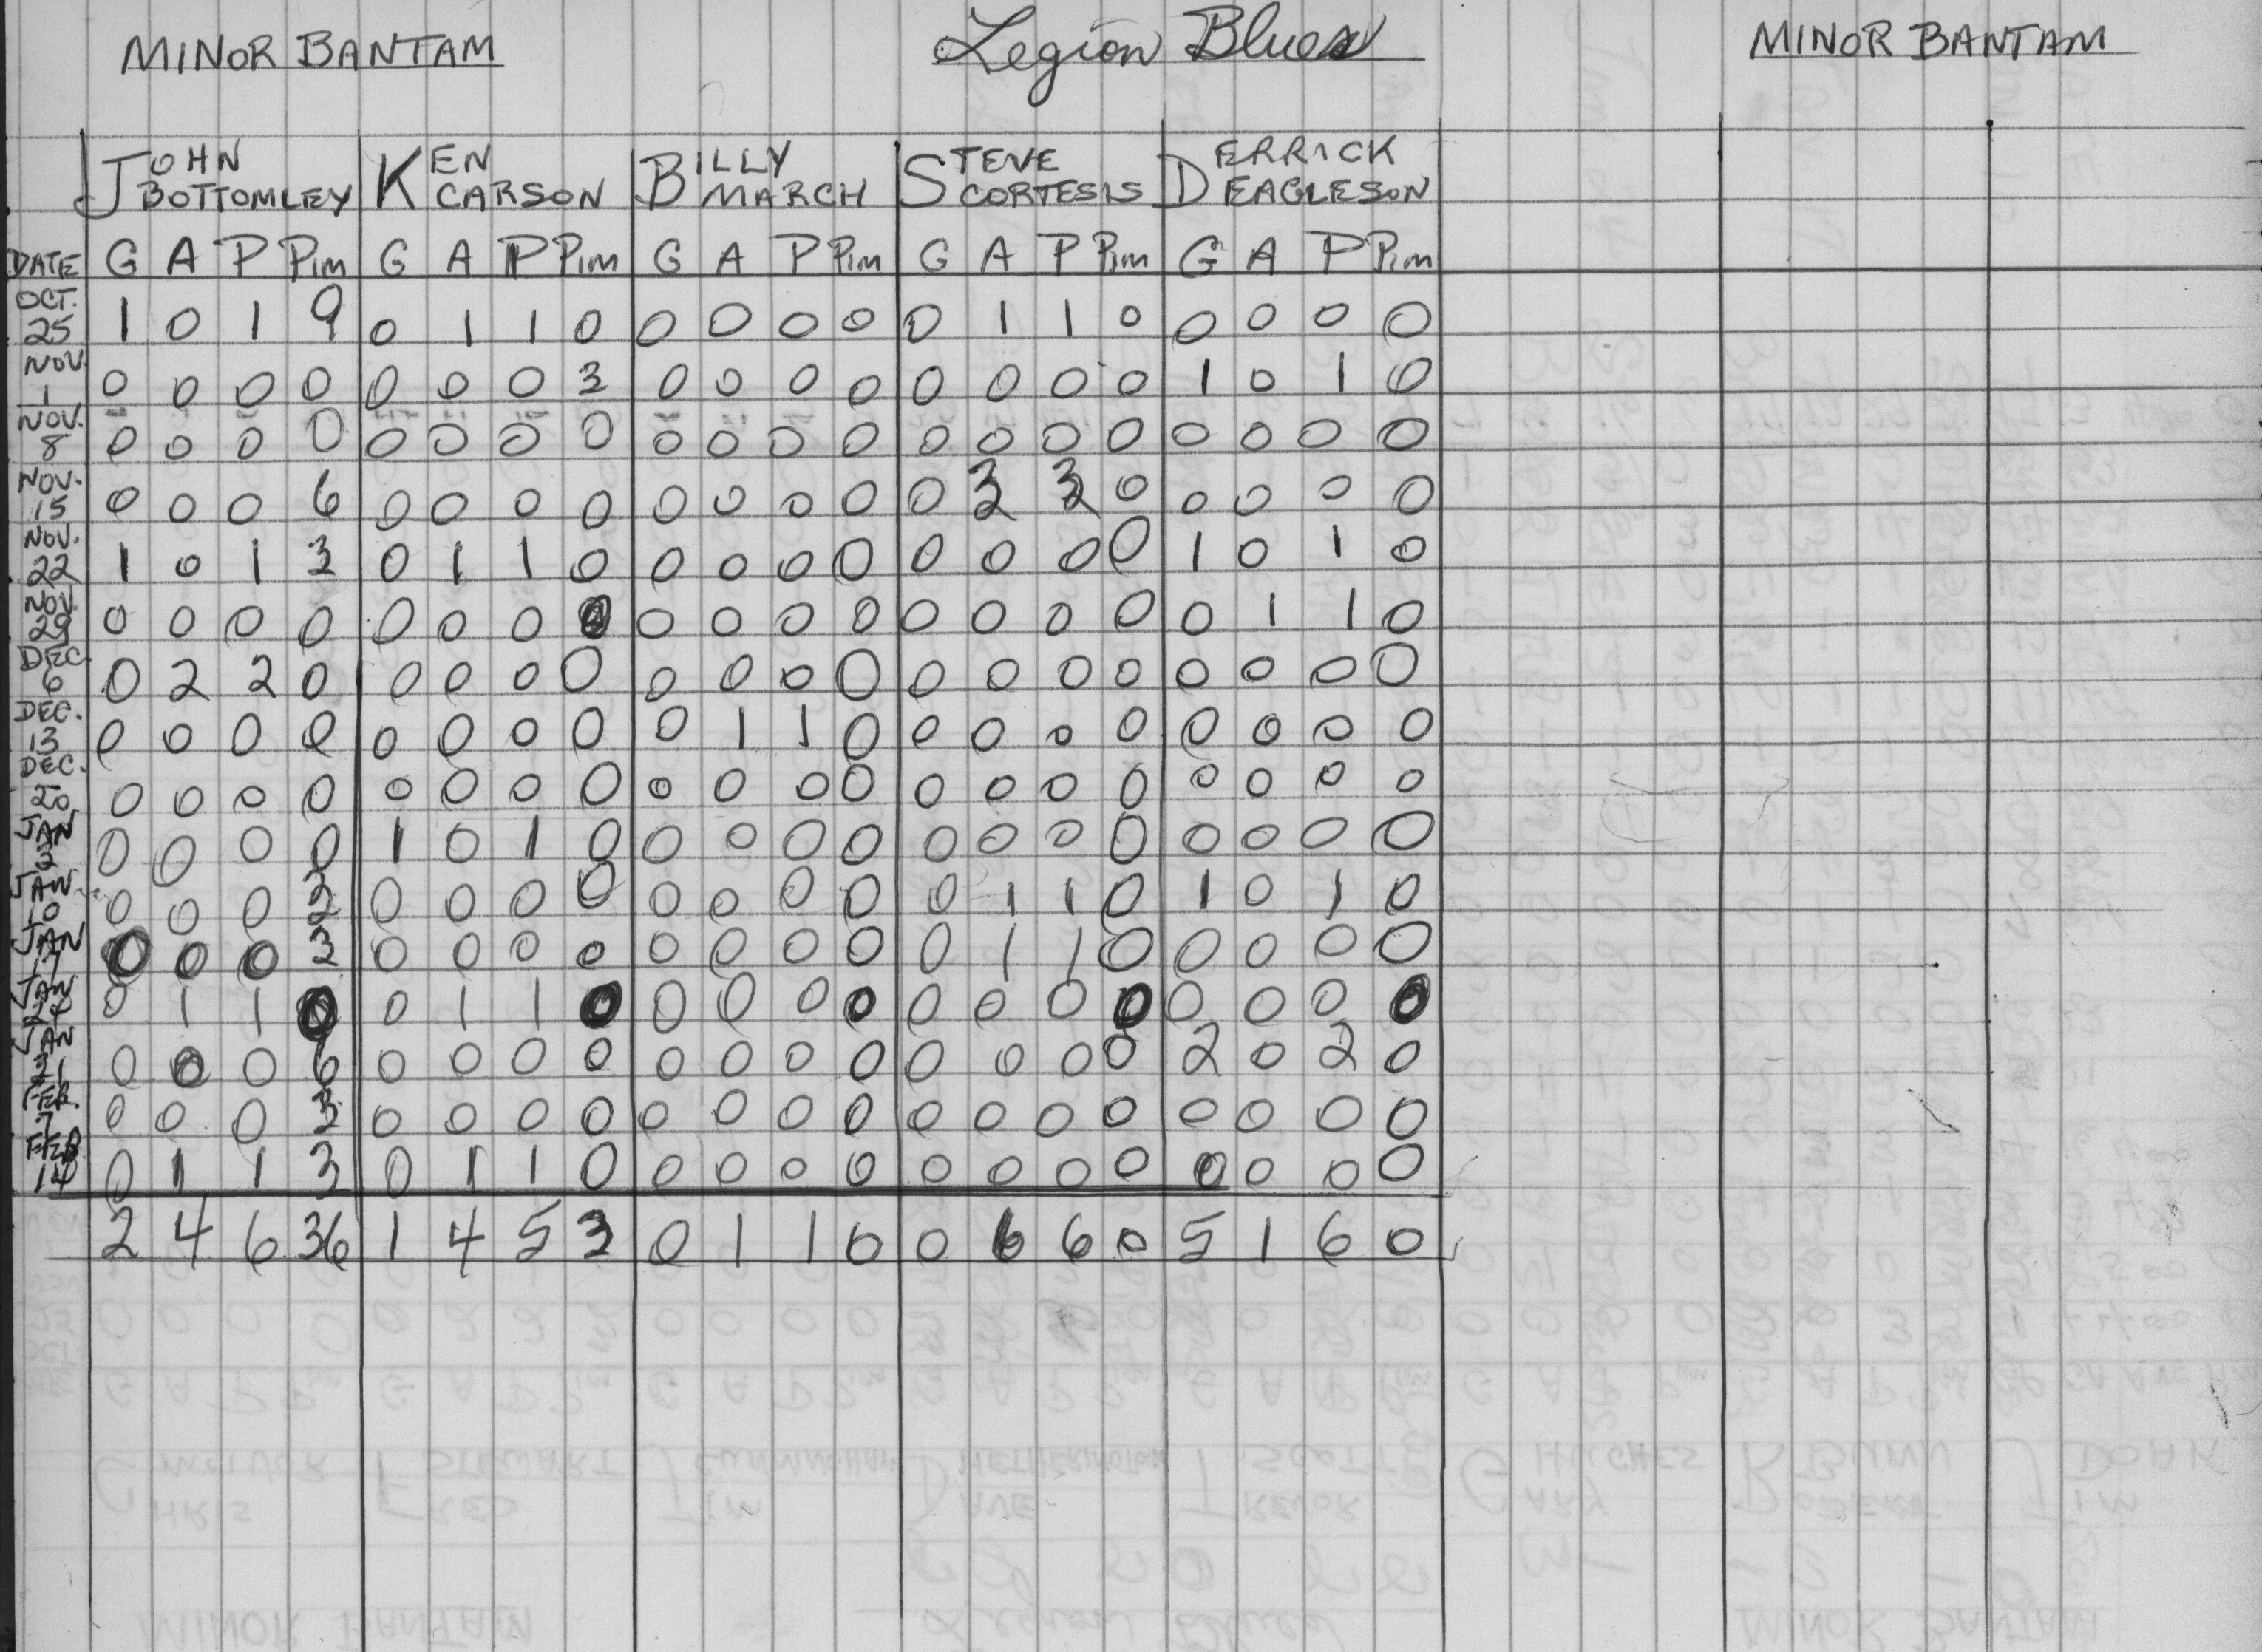 MINOR BANTAM Legion Blues MINOR BANTAM
JOHN BOTTOMLEY KEN CARSON BILLY MARCH STEVE CORTESIS DERRICK DEAGLESON
DATE G A P Pim G A P Pim G A P Pim G A P Pim G A P Pim
OCT. 25 1 0 1 9 0 1 1 0 0 0 0 0 0 1 1 0 0 0 0 0
NOV. 1 0 0 0 0 0 0 0 3 0 0 0 0 0 0 0 0 1 0 1 0
NOV. 8 0 0 0 0 0 0 0 0 0 0 0 0 0 0 0 0 0 0 0 0
NOV. 15 0 0 0 6 0 0 0 0 0 0 0 0 0 3 3 0 0 0 0 0
NOV. 22 1 0 1 3 0 1 1 0 0 0 0 0 0 0 0 0 1 0 1 0
NOV 29 0 0 0 0 0 0 0 0 0 0 0 0 0 0 0 0 0 1 1 0
DEC. 6 0 2 2 0 0 0 0 0 0 0 0 0 0 0 0 0 0 0 0 0
DEC. 13 0 0 0 0 0 0 0 0 0 1 1 0 0 0 0 0 0 0 0 0
DEC. 20 0 0 0 0 0 0 0 0 0 0 0 0 0 0 0 0 0 0 0 0
JAN 0 0 0 0 1 0 1 0 0 0 0 0 0 0 0 0 0 0 0 0
JAN. 10 0 0 0 2 0 0 0 0 0 0 0 0 0 1 1 0 1 0 1 0
JAN 17 0 0 0 3 0 0 0 0 0 0 0 0 0 1 1 0 0 0 0 0
JAN 24 0 1 1 0 0 1 1 0 0 0 0 0 0 0 0 0 0 0 0 0
JAN 31 0 0 0 6 0 0 0 0 0 0 0 0 0 0 0 0 2 0 2 0
FEB. 7 0 0 0 3 0 0 0 0 0 0 0 0 0 0 0 0 0 0 0 0
FEB 14 0 1 1 3 0 1 1 0 0 0 0 0 0 0 0 0 0 0 0 0
2 4 6 36 1 4 5 3 0 1 1 0 0 6 6 0 5 1 6 0